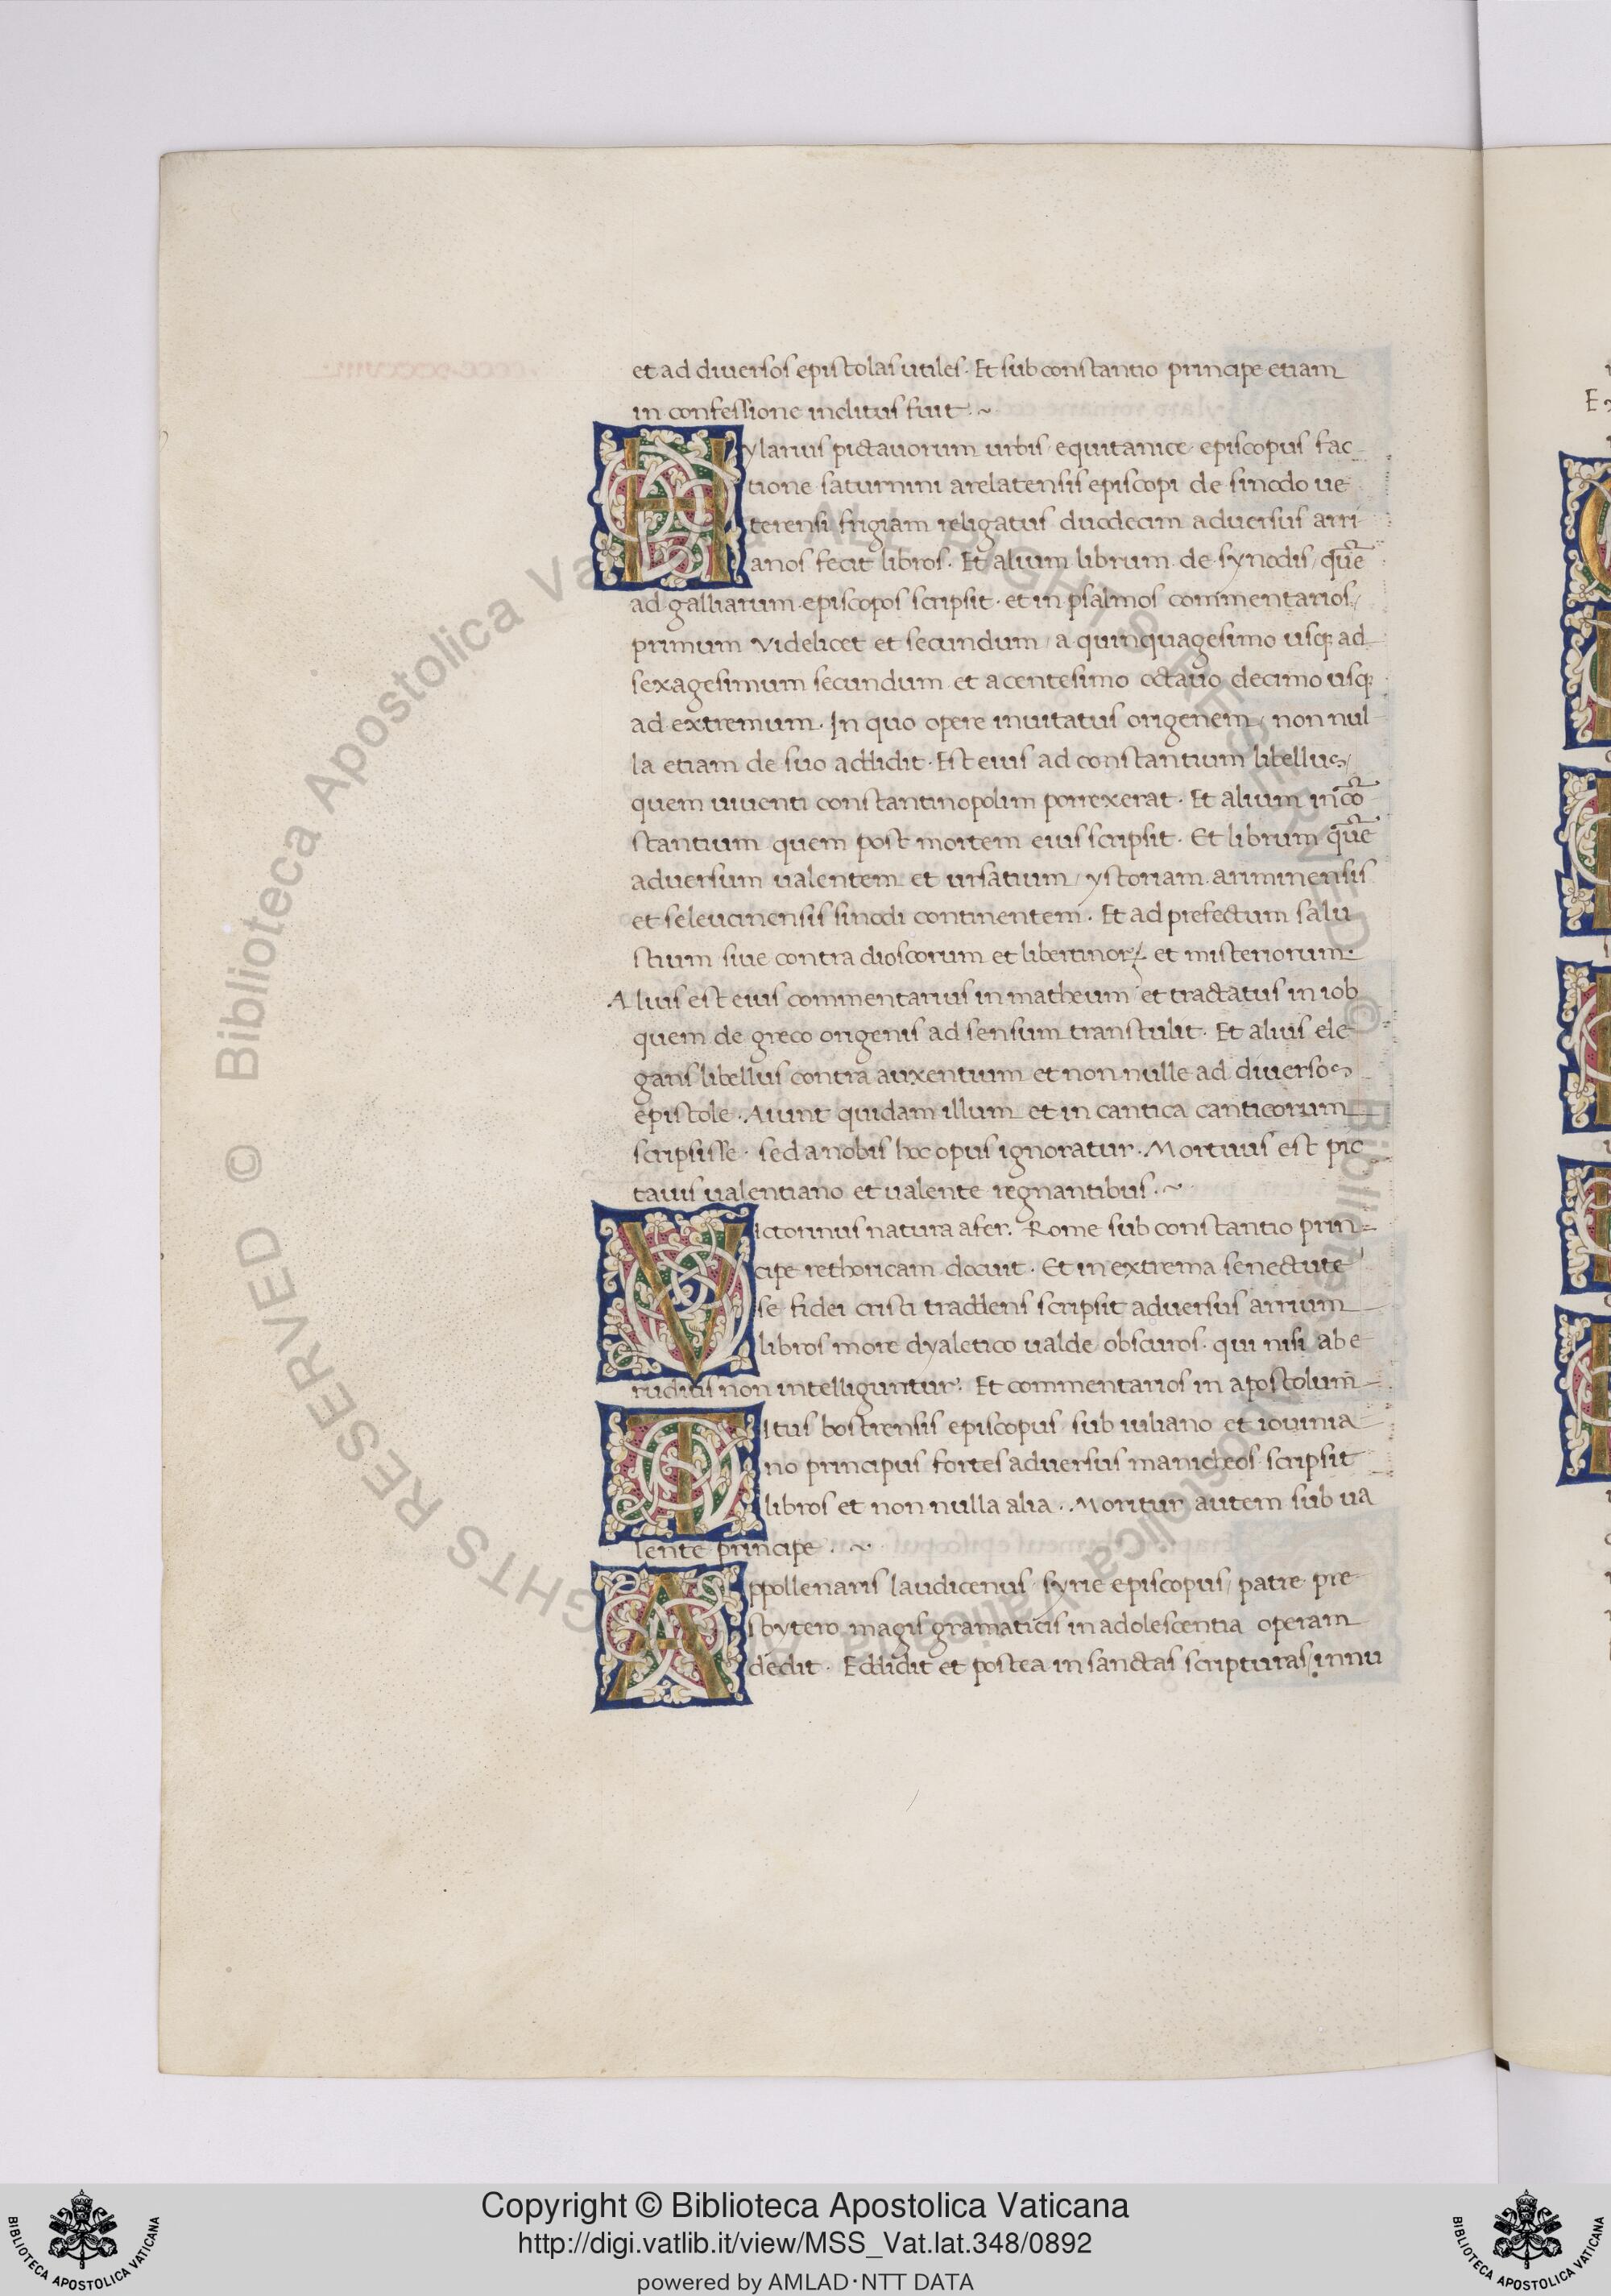 et ad diuersos epistolas utiles. Et sub constantio principe etiam
in confessione inclitus fuit. ~
Hylarius pictauorum urbis equitanice episcopus fac
tione saturnini arelatensis episcopi de sinodo ue
terensi frigiam religatus duodecim aduersus arri
anos fecit libros. Et alium librum de synodis / quē
ad galliarum episcopos scripsit. et in psalmos commentarios /
primum videlicet et secundum / a quinquagesimo usq; ad
sexagesimum secundum et a centesimo octauo decimo usq;
ad extremum. In quo opere inuitatus origenem / non nul
la etiam de suo addidit. Est eius ad constantium libellus /
quem uiuenti constantinopolim porrexerat. Et alium in cō
stantium quem post mortem eius scripsit. Et librum quē
aduersum ualentem et ursatium / ystoriam ariminensis
et seleucinensis sinodi continentem. Et ad prefectum salu
stium siue contra dioscorum et libertinorꝝ et misteriorum.
Alius est eius commentarius in matheum et tractatus in iob
quem de greco origenis ad sensum transtulit. Et alius ele
gans libellus contra auxentium et non nulle ad diuersos
epistole. Aiunt quidam illum et in cantica canticorum
scripsisse. sed a nobis hoc opus ignoratur. Mortuus est pic
tauis ualentiano et ualente regnantibus. ~
Victorinus natura afer. Rome sub constantio prin=
cipe rethoricam docuit. Et in extrema senectute
se fidei cristi tradens scripsit aduersus arrium
libros more dyaletico ualde obscuros. qui nisi ab e
ruditis non intelliguntur. Et commentarios in apostolum
Titus bostrensis episcopus sub iuliano et iouinia
no principus fortes aduersus manicheos scripsit
libros et non nulla alia. Moritur autem sub ua
lente principe. ~
Appollenaris laudicenus syrie episcopus / patre pre
sbytero magis gramaticis in adolescentia operam
dedit. Eddidit et postea in sanctas scripturas / innu
Copyright © Biblioteca Apostolica Vaticana
http://digi.vatlib.it/view/MSS_Vat.lat.348/0892
powered by AMLAD·NTT DATA
BIBLIOTECA APOSTOLICA VATICANA
BIBLIOTECA APOSTOLICA VATICANA